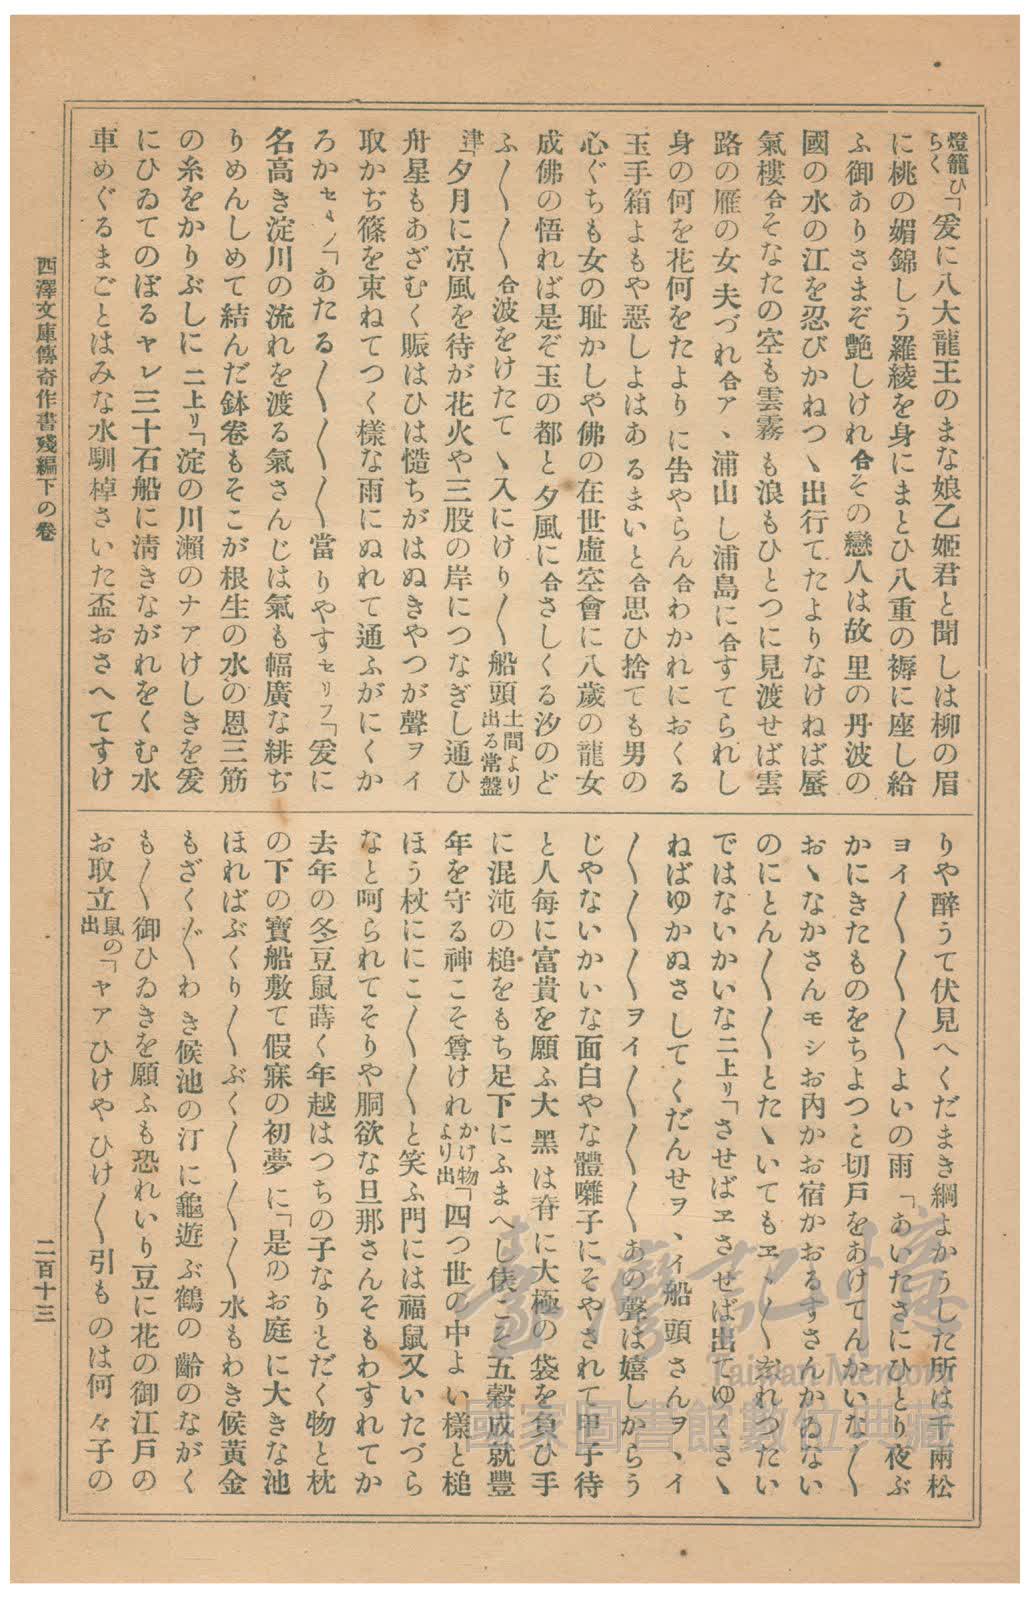 燈籠ひらく「爰に八大龍王のまな娘乙姫君と聞しは柳の眉
に桃の媚錦しう羅綾を身にまとひ八重の褥に座し給
ふ御ありさまぞ艶しけれ合その戀人は故里の丹波の
國の水の江を忍びかねつゝ出行てたよりなけねば蜃
氣樓合そなたの空も雲霧も浪もひとつに見渡せば雲
路の雁の女夫づれ合ア、浦山し浦島に合すてられし
身の何を花何をたよりに告やらん合わかれにおくる
玉手箱よもや惡しよはあるまいと合思ひ捨ても男の
心ぐちも女の耻かしや佛の在世虛空會に八歳の龍女
成佛の悟れば是ぞ玉の都と夕風に合さしくる汐のど
ふ〳〵〳〵合波をけたてゝ入にけり〳〵船頭土間より出る常盤
津夕月に凉風を待が花火や三股の岸につなぎし通ひ
舟星もあざむく賑はひは慥ちがはぬきやつが聲ヲイ
取かぢ篠を束ねてつく様な雨にぬれて通ふがにくか
ろかセヰノ「あたる〳〵〳〵〳〵當りやすセリフ「爰に
名高き淀川の流れを渡る氣さんじは氣も幅廣な緋ぢ
りめんしめて結んだ鉢卷もそこが根生の水の恩三筋
の糸をかりぶしに二上リ「淀の川瀬のナアけしきを爰
にひゐてのぼるヤレ三十石船に淸きながれをくむ水
車めぐるまごとはみな水馴棹さいた盃おさへてすけ
りや醉うて伏見へくだまき綱よかうした所は千兩松
ヨイ〳〵〳〵〳〵よいの雨「あいたさにひとり夜ぶ
かにきたものをちよつと切戸をあけてんかいな〳〵
おゝなかさんモシお内かお宿かおるすさんかゐない
のにとん〳〵〳〵とたゝいてもヱ、〳〵おれつたい
ではないかいな二上リ「させばヱさせば出てゆくさゝ
ねばゆかぬさしてくだんせヲ、イ船頭さんヲ、イ
〳〵〳〵〳〵ヲイ〳〵〳〵〳〵あの聲は嬉しからう
じやないかいな面白やな體囃子にそやされて甲子待
と人毎に富貴を願ふ大黑は脊に大極の袋を負ひ手
に混沌の槌をもち足下にふまへし俵こそ五穀成就豐
年を守る神こそ尊けれかけ物より出「四つ世の中よい様と槌
ほう杖ににこ〳〵〳〵と笑ふ門には福鼠又いたづら
なと呵られてそりや胴欲な旦那さんそもわすれてか
去年の冬豆鼠蒔く年越はつちの子なりとだく物と枕
の下の寶船敷て假寐の初夢に「是のお庭に大きな池
ほればぶくり〳〵ぶく〳〵〳〵〳〵水もわき候黄金
もざく〴〵わき候池の汀に龜遊ぶ鶴の齡のながく
も〳〵御ひゐきを願ふも恐れいり豆に花の御江戸の
お取立鼠の出「ヤアひけやひけ〳〵引ものは何々子の
西澤文庫傳奇作書殘編下の卷
二百十三
臺灣記憶
Taiwan Memory
國家圖書館數位典藏